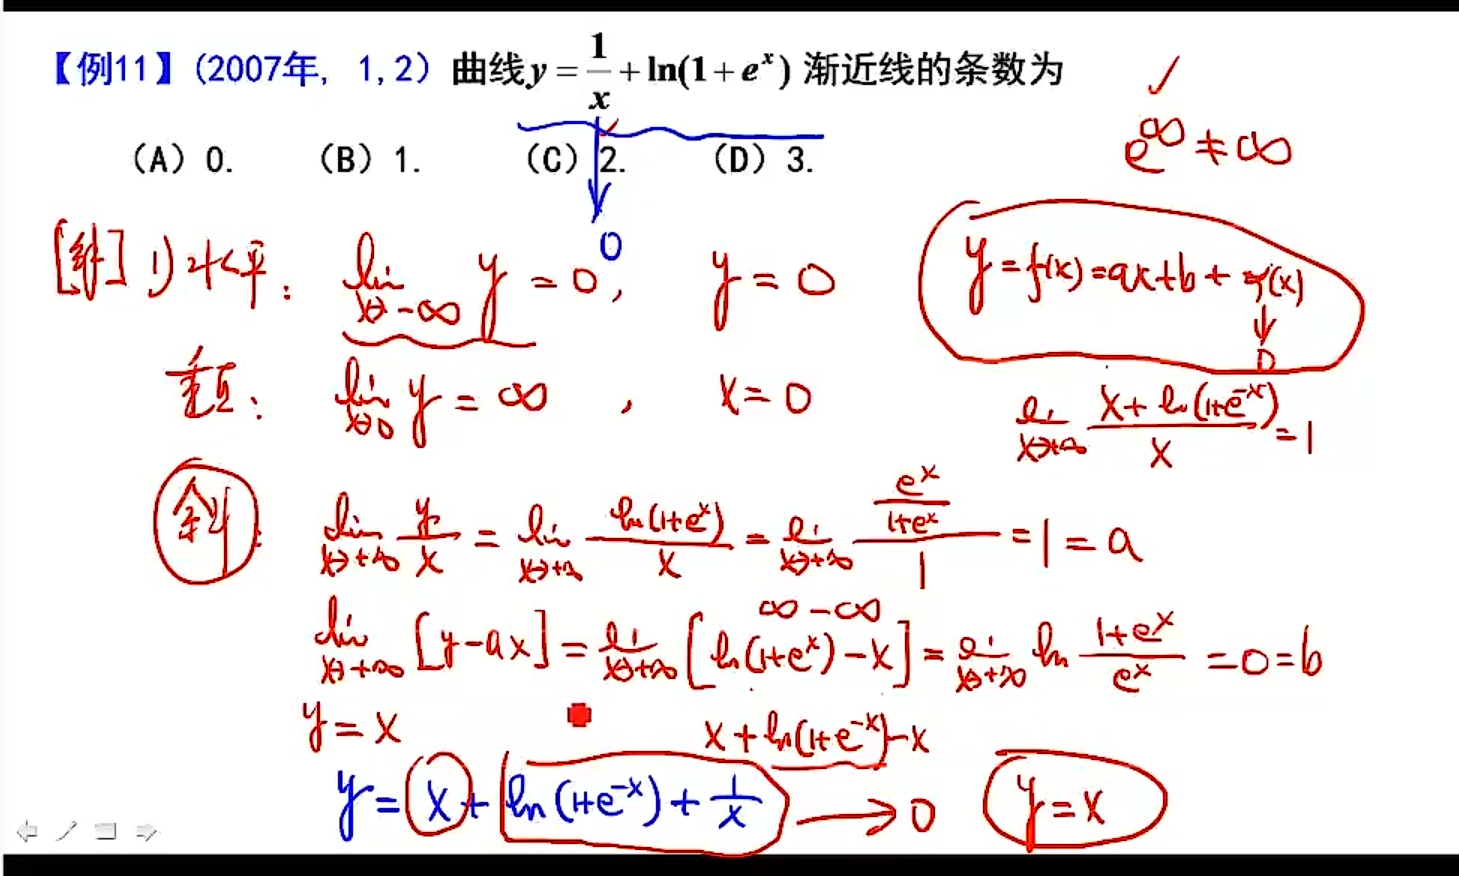 【例11】(2007年, 1,2) 曲线 y = 1/x + ln(1+e^x) 渐近线的条数为
(A) 0. (B) 1. (C) 2. (D) 3.
✓
e^∞ ≠ ∞
0
[解] 1) 水平: lim x→-∞ y = 0, y = 0
y = f(x) = ax+b + α(x)
↓
0
垂直: lim x→0 y = ∞, x = 0
lim x→+∞ (x + ln(1+e^-x))/x = 1
斜: lim x→+∞ y/x = lim x→+∞ ln(1+e^x)/x = lim x→+∞ (e^x/(1+e^x))/1 = 1 = a
∞ - ∞
lim x→+∞ [y-ax] = lim x→+∞ [ln(1+e^x) - x] = lim x→+∞ ln (1+e^x)/e^x = 0 = b
y = x
x + ln(1+e^-x) - x
y = x + ln(1+e^-x) + 1/x → 0 y = x